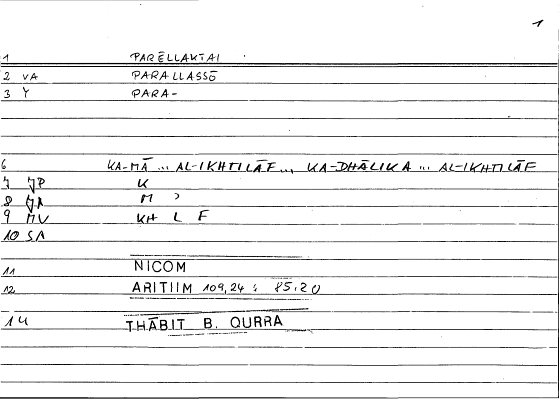 1
1 PARĒLLAKTAI
2 VA PARALLASSŌ
3 Y PARA-
6 KA-MĀ ... AL-IKHTILĀF ... KA-DHĀLIKA ... AL-IKHTILĀF
7 K
8 M ʾ
9 KH L F
10 SA
11 NICOM
12 ARITIIM 109,24 : 85.20
14 THĀBIT B. QURRA